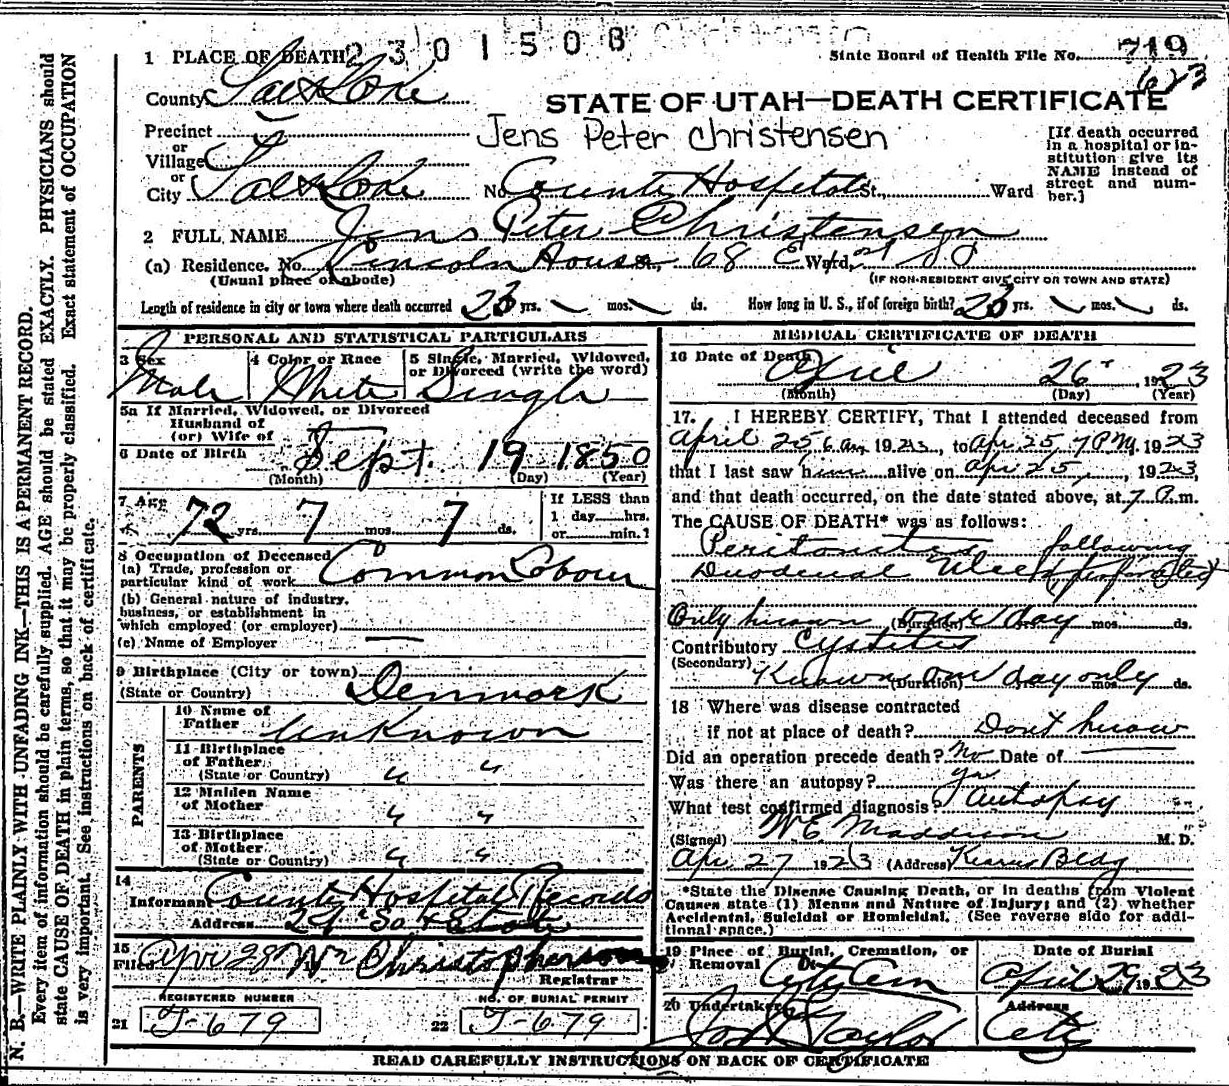 2301508 Christensen
1 PLACE OF DEATH State Board of Health File No. 719
623
County Salt Lake STATE OF UTAH—DEATH CERTIFICATE
Precinct Jens Peter Christensen
or
Village
or
City Salt Lake No. County Hospital St., Ward
[If death occurred
in a hospital or in-
stitution give its
NAME instead of
street and num-
ber.]
2 FULL NAME Jens Peter Christensen
(a) Residence. No. Lincoln House St., 68 E Ward, 2nd So
(Usual place of abode) (IF NON-RESIDENT GIVE CITY OR TOWN AND STATE)
Length of residence in city or town where death occurred 23 yrs. mos. ds. How long in U. S., if of foreign birth? 23 yrs. mos. ds.
PERSONAL AND STATISTICAL PARTICULARS
3 Sex 4 Color or Race 5 Single, Married, Widowed,
or Divorced (write the word)
Male White Single
5a If Married, Widowed, or Divorced
Husband of
(or) Wife of
6 Date of Birth Sept. 19 1850
(Month) (Day) (Year)
7 Age 72 yrs. 7 mos. 7 ds.
If LESS than
1 day hrs.
or min.?
8 Occupation of Deceased
(a) Trade, profession or
particular kind of work Common Labour
(b) General nature of industry,
business, or establishment in
which employed (or employer)
(c) Name of Employer
9 Birthplace (City or town)
(State or Country) Denmark
PARENTS
10 Name of
Father Unknown
11 Birthplace
of Father
(State or Country) " "
12 Maiden Name
of Mother " "
13 Birthplace
of Mother
(State or Country) " "
14
Informant County Hospital Records
Address 21 So & State
15
Filed Apr 28 Wm Christopherson
Registrar
REGISTERED NUMBER NO. OF BURIAL PERMIT
21 J-679 22 J-679
MEDICAL CERTIFICATE OF DEATH
16 Date of Death April 26 1923
(Month) (Day) (Year)
17. I HEREBY CERTIFY, That I attended deceased from
April 25 6 am 1923, to Apr 25 7 PM 1923
that I last saw him alive on Apr 25, 1923,
and that death occurred, on the date stated above, at 7 a.m.
The CAUSE OF DEATH* was as follows:
Peritonitis following
Duodenal Ulcer (perforated)
Only known (Duration) one yrs. day mos. ds.
Contributory Cystitis
(Secondary)
Known (Duration) one yrs. day only mos. ds.
18 Where was disease contracted
if not at place of death? Dont know
Did an operation precede death? No Date of
Was there an autopsy? yes
What test confirmed diagnosis? Autopsy
(Signed) W E Maddison M. D.
Apr 27 1923 (Address) Kearns Bldg
*State the Disease Causing Death, or in deaths from Violent
Causes state (1) Means and Nature of Injury; and (2) whether
Accidental, Suicidal or Homicidal. (See reverse side for addi-
tional space.)
19 Place of Burial, Cremation, or
Removal City Cem
Date of Burial
April 29 1923
20 Undertaker Address
Jos Taylor City
READ CAREFULLY INSTRUCTIONS ON BACK OF CERTIFICATE
N. B.—WRITE PLAINLY WITH UNFADING INK—THIS IS A PERMANENT RECORD.
Every item of information should be carefully supplied. AGE should be stated EXACTLY. PHYSICIANS should
state CAUSE OF DEATH in plain terms, so that it may be properly classified. Exact statement of OCCUPATION
is very important. See instructions on back of certificate.